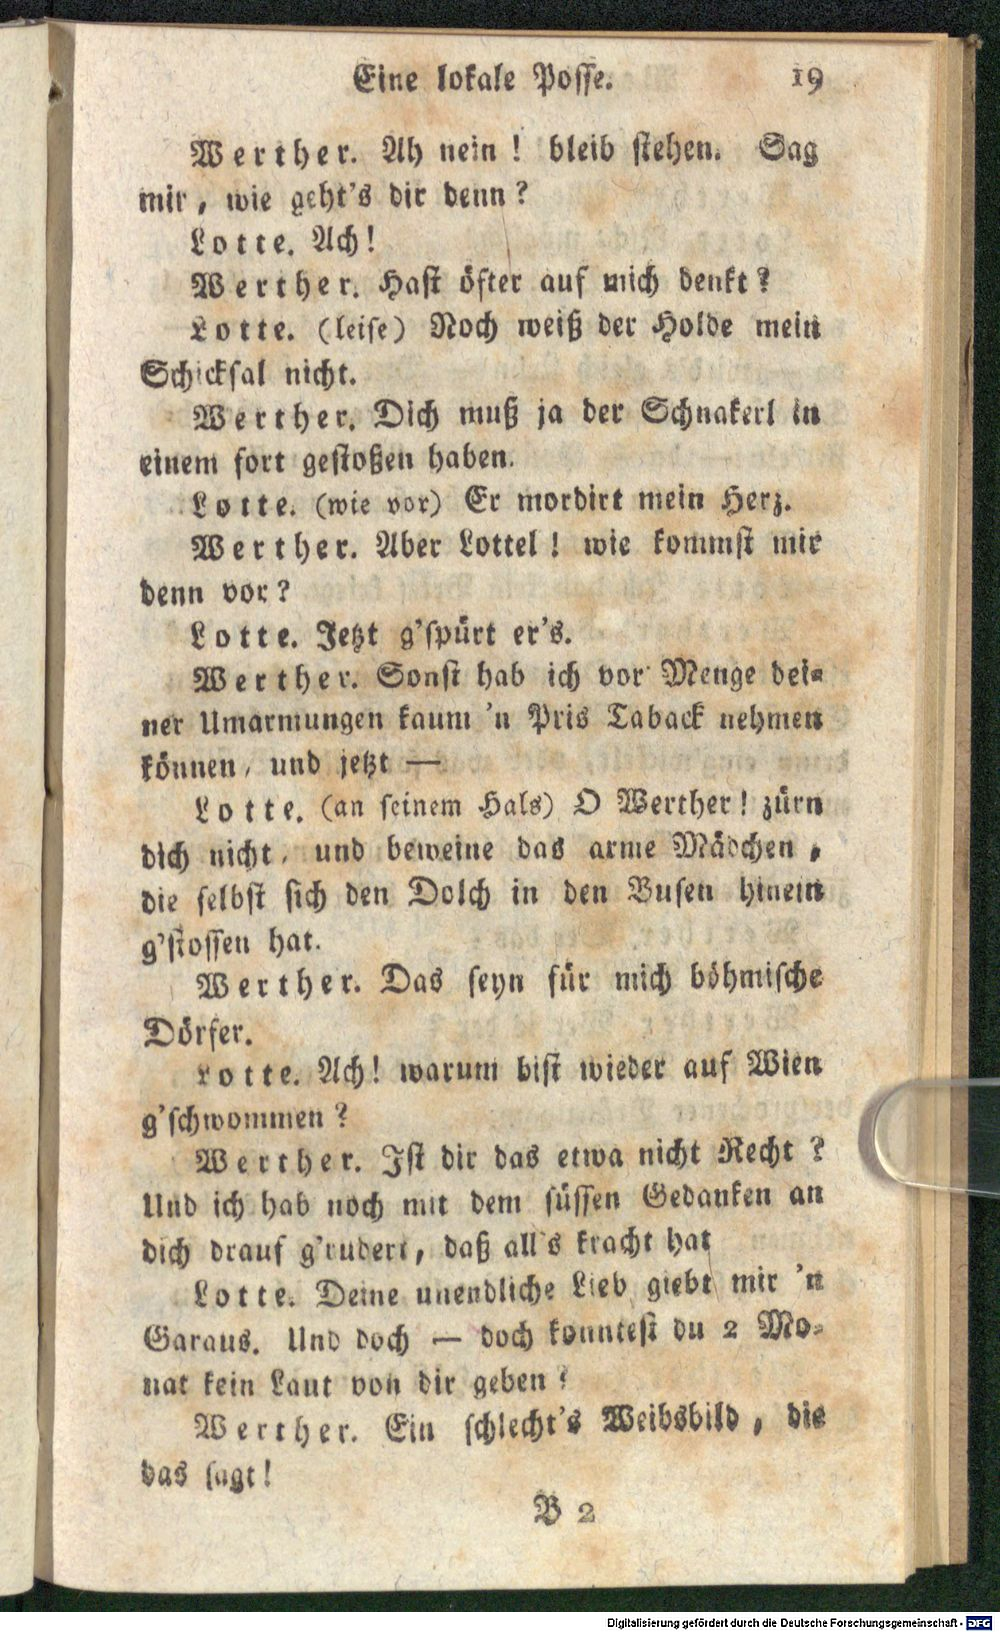 Eine lokale Posse. 19
Werther. Ah nein! bleib stehen. Sag
mir, wie geht's dir denn?
Lotte. Ach!
Werther. Hast öfter auf mich denkt?
Lotte. (leise) Noch weiß der Holde mein
Schicksal nicht.
Werther. Dich muß ja der Schnakerl in
einem fort gestoßen haben.
Lotte. (wie vor) Er mordirt mein Herz.
Werther. Aber Lottel! wie kommst mir
denn vor?
Lotte. Jetzt g'spürt er's.
Werther. Sonst hab ich vor Menge dei-
ner Umarmungen kaum 'n Pris Taback nehmen
können, und jetzt —
Lotte. (an seinem Hals) O Werther! zürn
dich nicht, und beweine das arme Mädchen,
die selbst sich den Dolch in den Busen hinein
g'stossen hat.
Werther. Das seyn für mich böhmische
Dörfer.
Lotte. Ach! warum bist wieder auf Wien
g'schwommen?
Werther. Ist dir das etwa nicht Recht?
Und ich hab noch mit dem süssen Gedanken an
dich drauf g'rudert, daß all's kracht hat
Lotte. Deine unendliche Lieb giebt mir 'n
Garaus. Und doch — doch konntest du 2 Mo-
nat kein Laut von dir geben?
Werther. Ein schlecht's Weibsbild, die
das sagt!
B 2
Digitalisierung gefördert durch die Deutsche Forschungsgemeinschaft - DFG